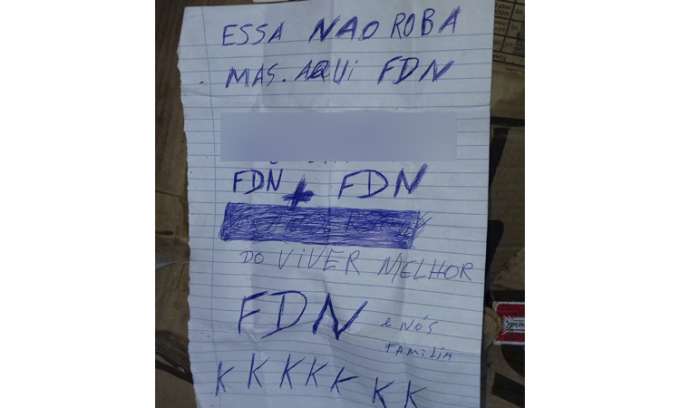 ESSA NAO ROBA
MAS. AQUI FDN
FDN + FDN
DO VIVER MELHOR
FDN
é NÓS
FAMILIA
K K K K K K K